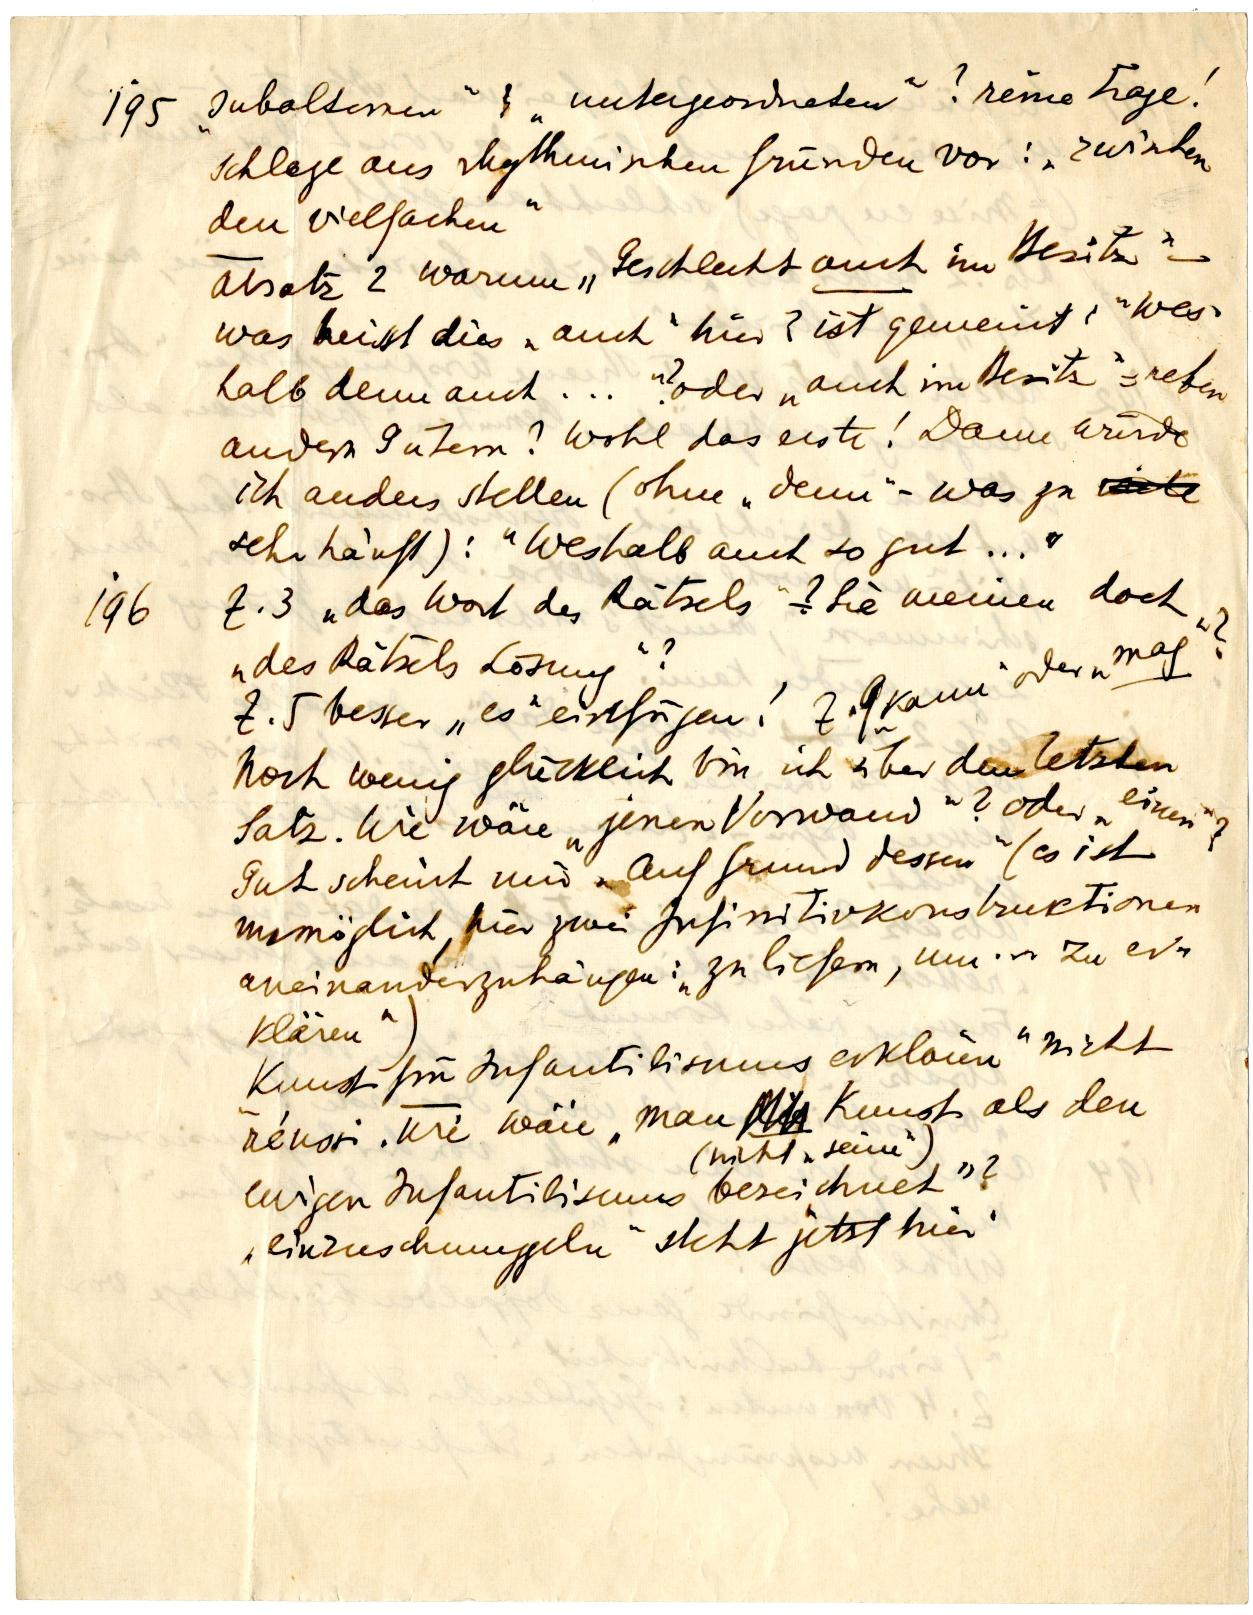 195 „subalternen“ & „untergeordneten“? reine Frage!
schlage aus rhythmischen Gründen vor: „zwischen
den vielfachen“
Absatz 2 warum „Geschlecht auch im Besitz“ –
was heisst dies „auch“ hier? ist gemeint: „wes-
halb denn auch ... “? oder „auch im Besitz“ = neben
andern Gütern? Wohl das erste! Dann würde
ich anders stellen (ohne „denn“ – was zu
sehr häuft): „Weshalb auch so gut ...“
196 Z. 3 „das Wort des Rätsels“ –? Sie meinen doch
„des Rätsels Lösung“?
Z. 5 besser „es“ einfügen! Z. 9 „kann“ oder „mag“?
Noch wenig glücklich bin ich über den letzten
Satz. Wie wäre „jenen Vorwand“? oder „einen“?
Gut scheint mir „Auf Grund dessen“ (es ist
unmöglich, hier zwei Infinitivkonstruktionen
aneinanderzuhängen: „zu liefern, um ... zu er-
klären“)
„Kunst für Infantilismus erklären“ nicht
réussi. Wie wäre „man Kunst als den
(nicht „seine“)
ewigen Infantilismus bezeichnet“?
„einzuschmuggeln“ steht jetzt hier